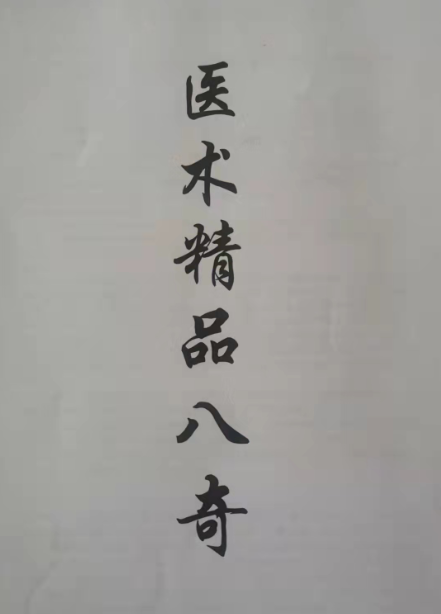 医术精品八奇